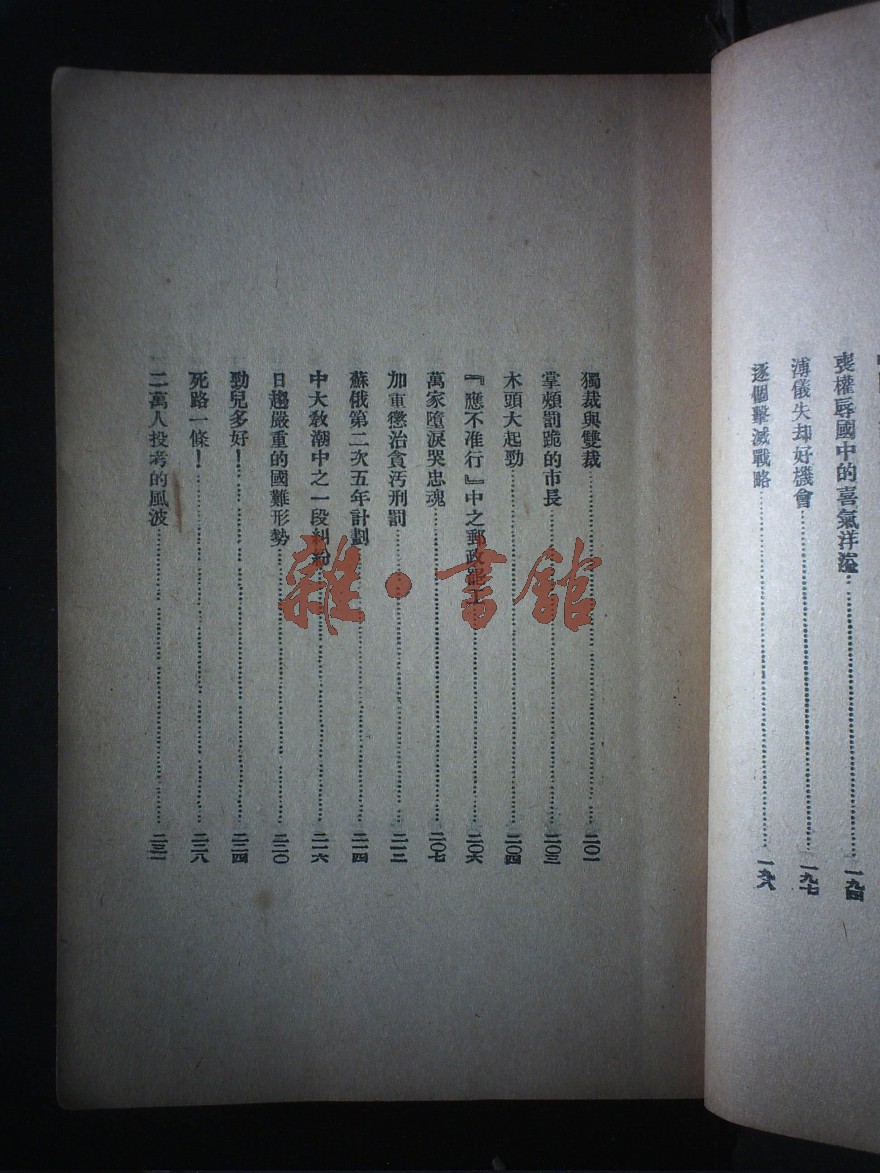 喪權辱國中的喜氣洋溢……一九四
溥儀失却好機會……一九七
逐個擊滅戰略……一九八
獨裁與雙裁……二〇一
掌頰罰跪的市長……二〇三
木頭大起勁……二〇四
『應不准行』中之郵政罷工……二〇六
萬家墮淚哭忠魂……二〇七
加重懲治貪汚刑罰……二一二
蘇俄第二次五年計劃……二一四
中大敎潮中之一段糾紛……二一六
日趨嚴重的國難形勢……二二〇
勁兒多好！……二二四
死路一條！……二二八
二萬人投考的風波……二三一
雜·書館